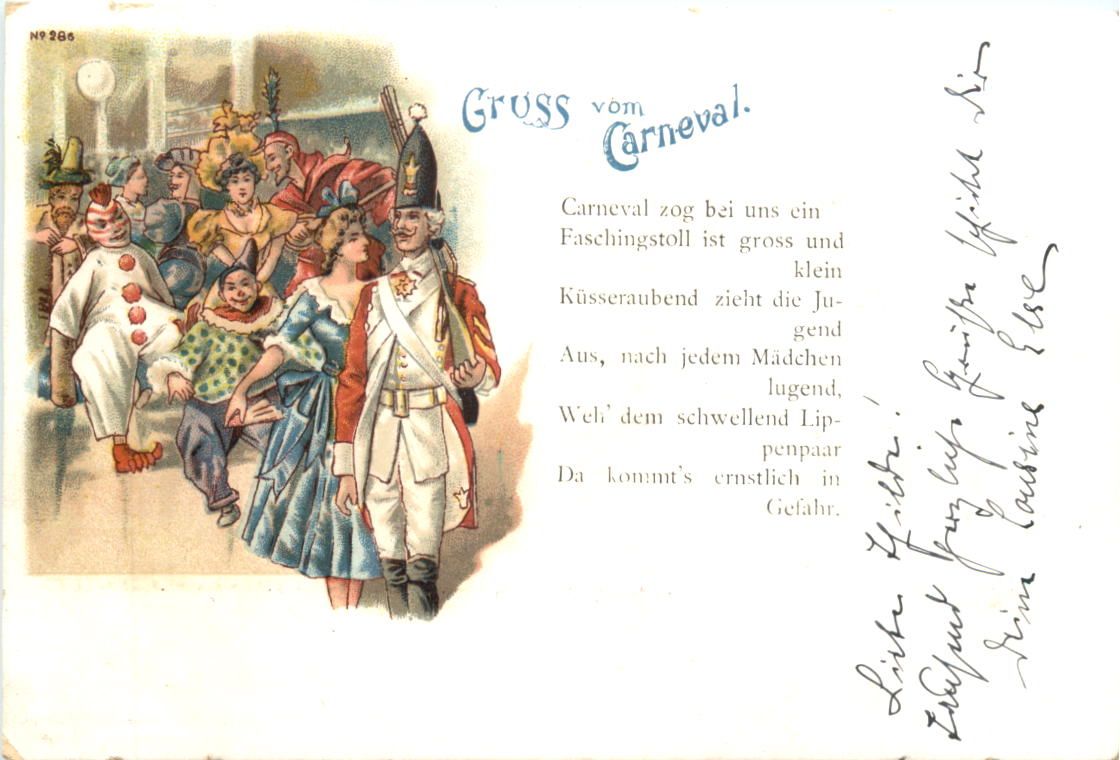 No 286
Gruss vom
Carneval.
Carneval zog bei uns ein
Faschingstoll ist gross und
klein
Küsseraubend zieht die Ju-
gend
Aus, nach jedem Mädchen
lugend,
Weh' dem schwellend Lip-
penpaar
Da kommt's ernstlich in
Gefahr.
Liebe Hilde!
Tausend herzliche Grüße schickt dir
deine Cousine Else